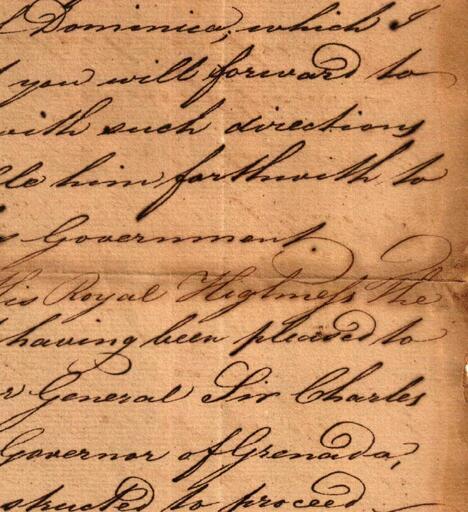 f Dominica, which I
d you will forward to
with such directions
ble him forthwith to
s Government.
His Royal Highness The
having been pleased to
r General Sir Charles
Governor of Grenada,
structed to proceed